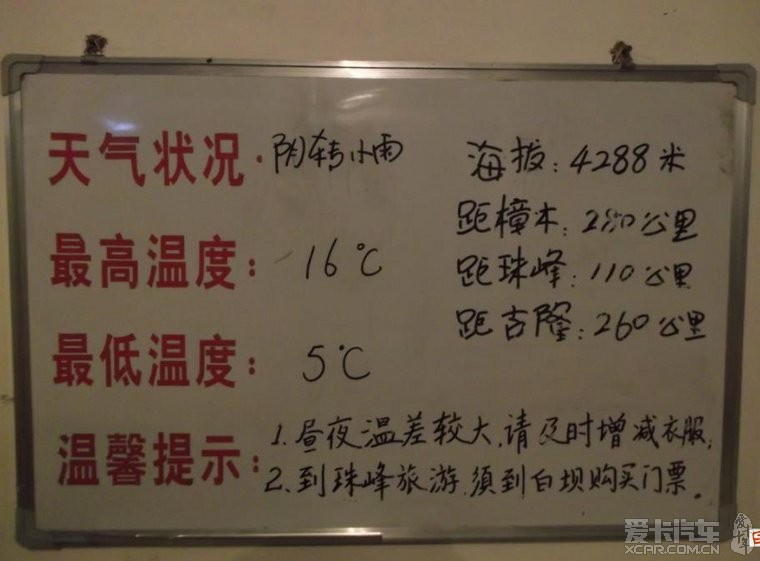 天气状况:阴转小雨
最高温度:16℃
最低温度:5℃
海拔:4288米
距樟木:280公里
距珠峰:110公里
距吉隆:260公里
温馨提示:1.昼夜温差较大,请及时增减衣服,
2、到珠峰旅游,须到白坝购买门票。
爱卡汽车
XCAR.COM.CN